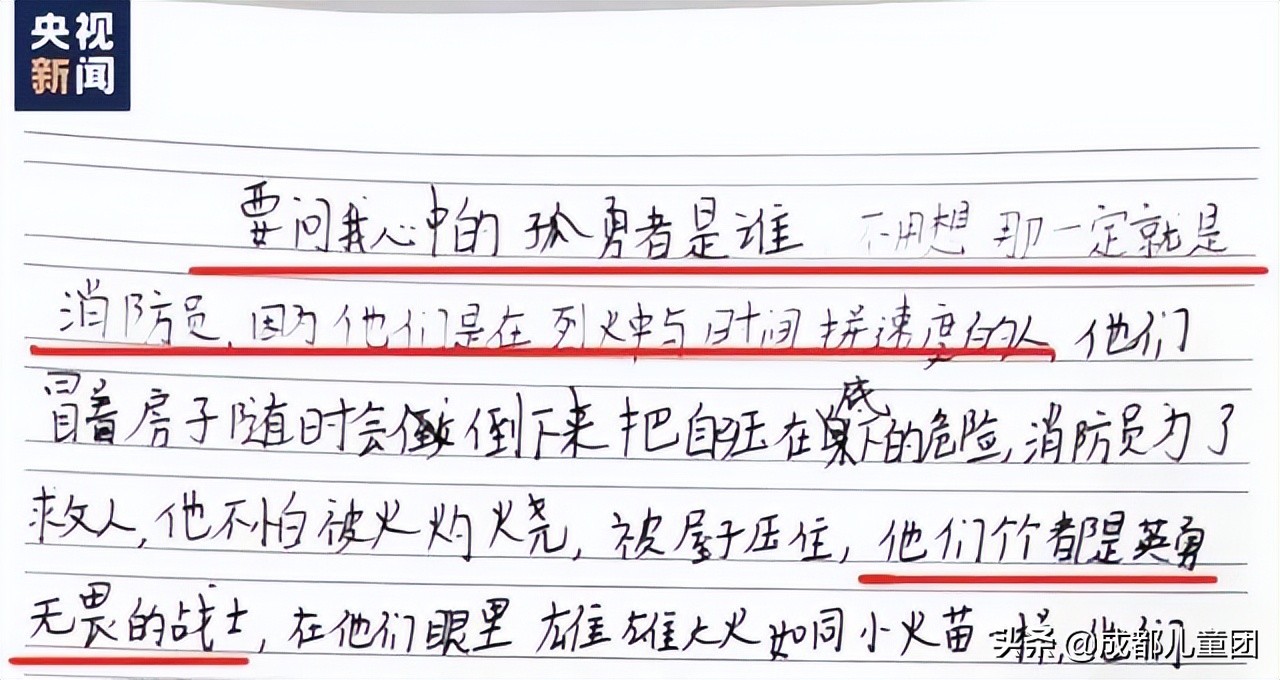 央视
新闻
要问我心中的孤勇者是谁 不用想 那一定就是
消防员,因为他们是在烈火中与时间拼速度的人,他们
冒着房子随时会倒下来把自压在底下的危险,消防员为了
救人,他不怕被火灼烧,被屋子压住,他们个个都是英勇
无畏的战士,在他们眼里 雄雄大火如同小火苗一样,他们
头条 @成都儿童团